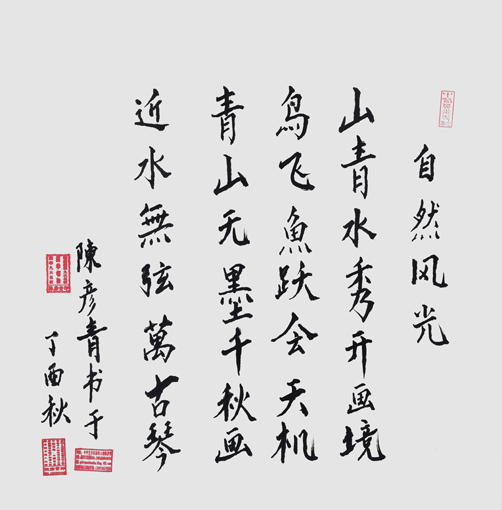 自然风光
山青水秀开画境
鸟飞魚跃会天机
青山无墨千秋画
近水無弦萬古琴
陳彦青书于
丁酉秋